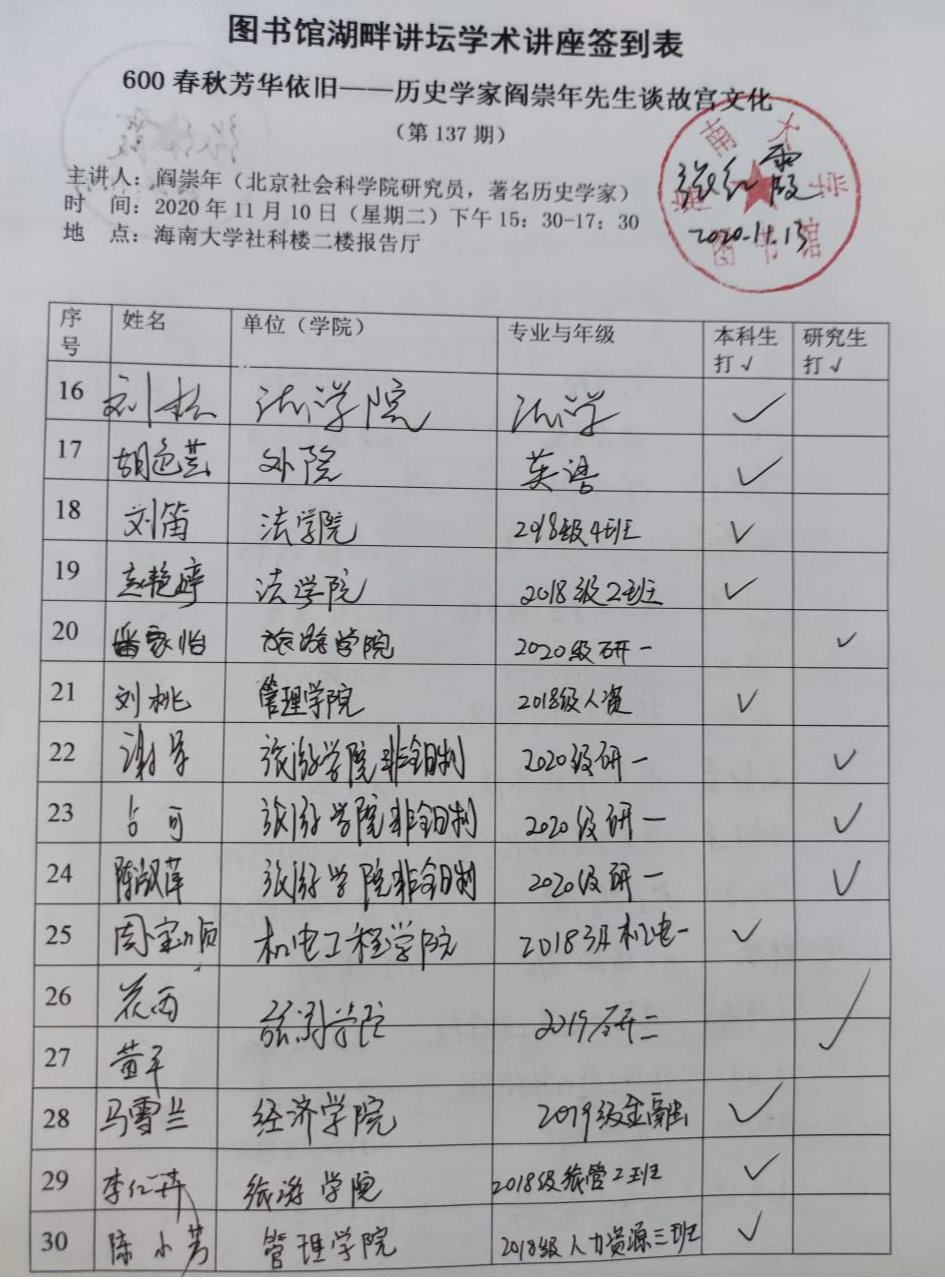 图书馆湖畔讲坛学术讲座签到表
600 春秋芳华依旧——历史学家阎崇年先生谈故宫文化
(第 137 期)
主讲人：阎崇年（北京社会科学院研究员，著名历史学家）
时 间：2020 年 11 月 10 日（星期二）下午 15：30-17：30
地 点：海南大学社科楼二楼报告厅
海南大学
图书馆
张红霞
2020.11.13
序号 姓名 单位（学院） 专业与年级 本科生打√ 研究生打√
16 刘松 法学院 法学 ✓
17 胡芸 外院 英语 ✓
18 刘笛 法学院 2018级4班 ✓
19 赵艳婷 法学院 2018级2班 ✓
20 家怡 旅游学院 2020级研一 ✓
21 刘桃 管理学院 2018级人资 ✓
22 谢 旅游学院非全日制 2020级研一 ✓
23 占可 旅游学院非全日制 2020级研一 ✓
24 陈淑萍 旅游学院非全日制 2020级研一 ✓
25 周宝顺 机电工程学院 2018级机电一 ✓
26 苏西 旅游学院 2019研二 ✓
27 黄平
28 马雪兰 经济学院 2019级金融 ✓
29 李仁卉 旅游学院 2018级旅管2班 ✓
30 陈小芳 管理学院 2018级人力资源三班 ✓